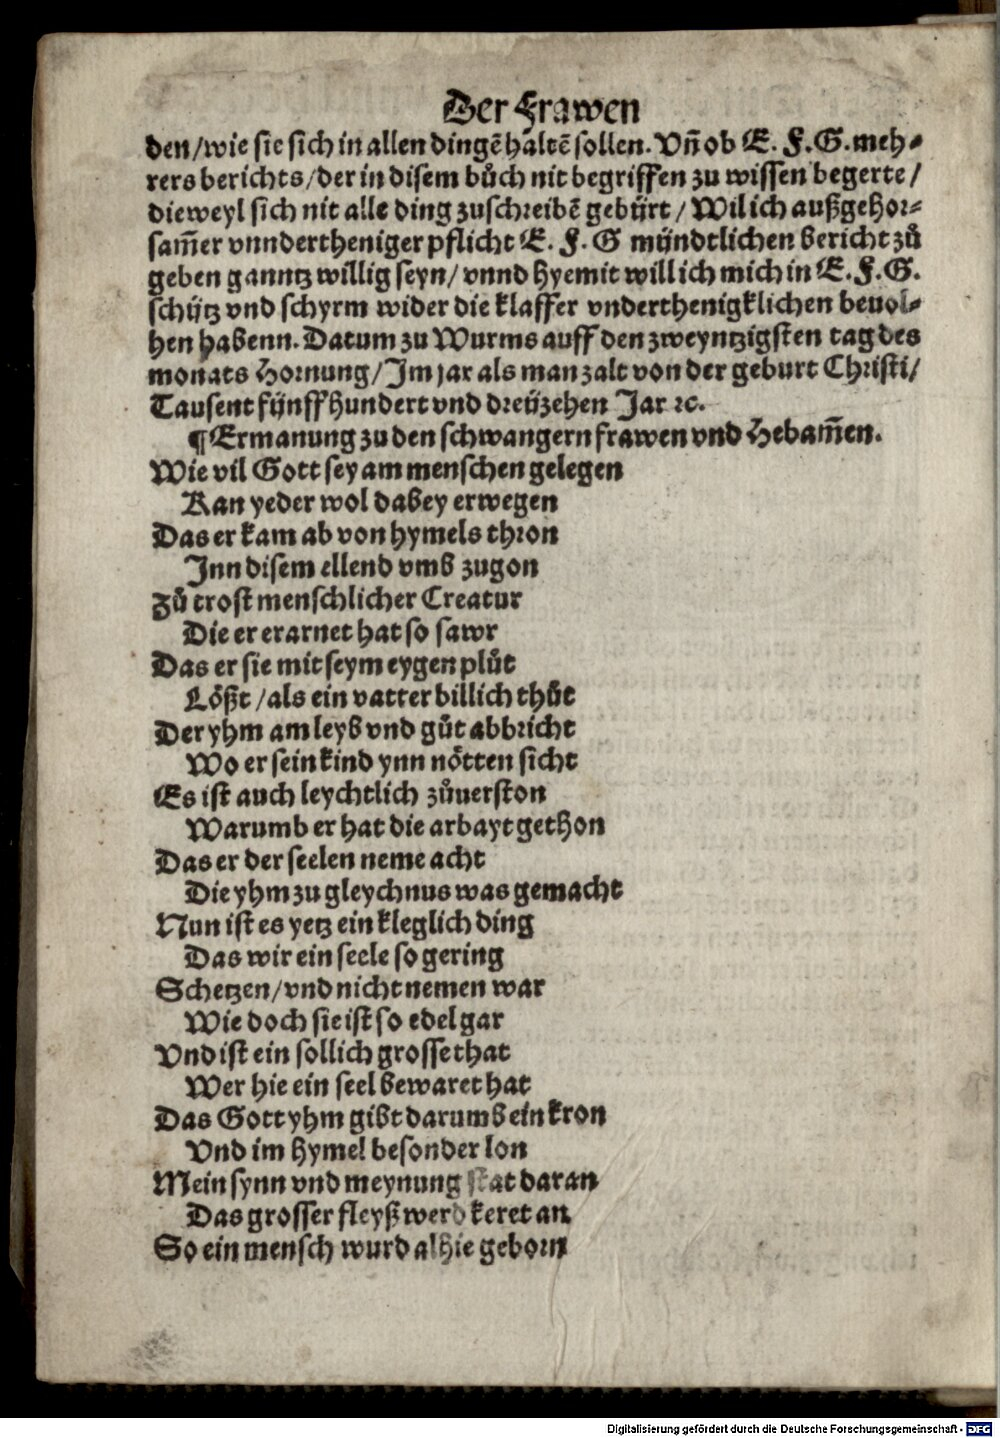 Der Frawen
den/wie sie sich in allen dingẽ haltẽ sollen. Vñ ob E. F. G. meh⸗
rers berichts/der in disem bůch nit begriffen zu wissen begerte/
dieweyl sich nit alle ding zuschreibẽ gebürt/ Wil ich außgehor⸗
sam̃er vnndertheniger pflicht E. F. G mündtlichen bericht zů
geben ganntz willig seyn/ vnnd hyemit will ich mich in E. F. G.
schütz vnd schyrm wider die klaffer vnderthenigklichen beuol⸗
hen habenn. Datum zu Wurms auff den zweyntzigsten tag des
monats Hornung/Im jar als man zalt von der geburt Christi/
Tausent fünff hundert vnd dreüzehen Jar ꝛc.
¶Ermanung zu den schwangern frawen vnd Hebam̃en.
Wie vil Gott sey am menschen gelegen
Kan yeder wol dabey erwegen
Das er kam ab von hymels thron
Inn disem ellend vmb zugon
Zů trost menschlicher Creatur
Die er erarnet hat so sawr
Das er sie mit seym eygen plůt
Lößt/als ein vatter billich thůt
Der yhm am leyb vnd gůt abbricht
Wo er sein kind ynn nötten sicht
Es ist auch leychtlich zůuerston
Warumb er hat die arbayt gethon
Das er der seelen neme acht
Die yhm zu gleychnus was gemacht
Nun ist es yetz ein kleglich ding
Das wir ein seele so gering
Schetzen/vnd nicht nemen war
Wie doch sie ist so edel gar
Vnd ist ein sollich grosse that
Wer hie ein seel bewaret hat
Das Gott yhm gibt darumb ein kron
Vnd im hymel besonder lon
Mein synn vnd meynung stat daran
Das grosser fleyß werd keret an
So ein mensch wurd alhie geborn
Digitalisierung gefördert durch die Deutsche Forschungsgemeinschaft - DFG